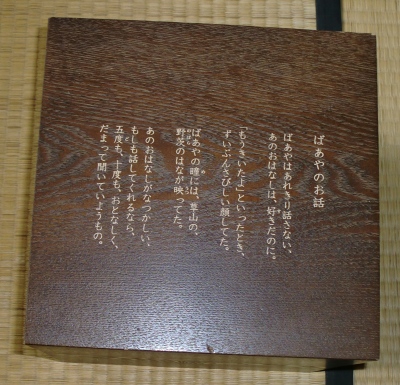 ばあやのお話
ばあやはあれきり話さない、
あのおはなしは、好きだのに。
「もうきいたよ」といったとき、
ずいぶんさびしい顔してた。
ばあやの瞳には、草山の、
野茨のはなが映ってた。
あのおはなしがなつかしい、
もしも話してくれるなら、
五度も、十度も、おとなしく、
だまって聞いていようもの。